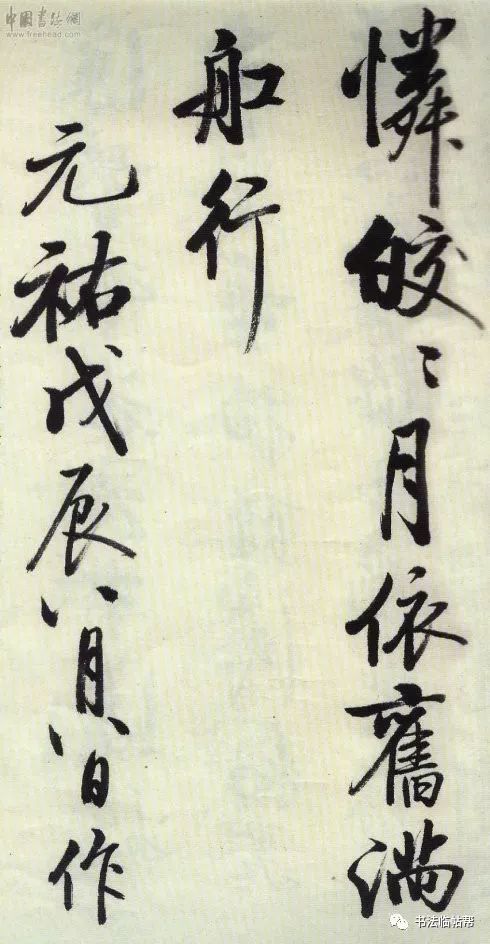 憐皎〻月依舊滿
船行
元祐戊辰八月八日作
中国书法网
www.freehead.com
书法临帖帮